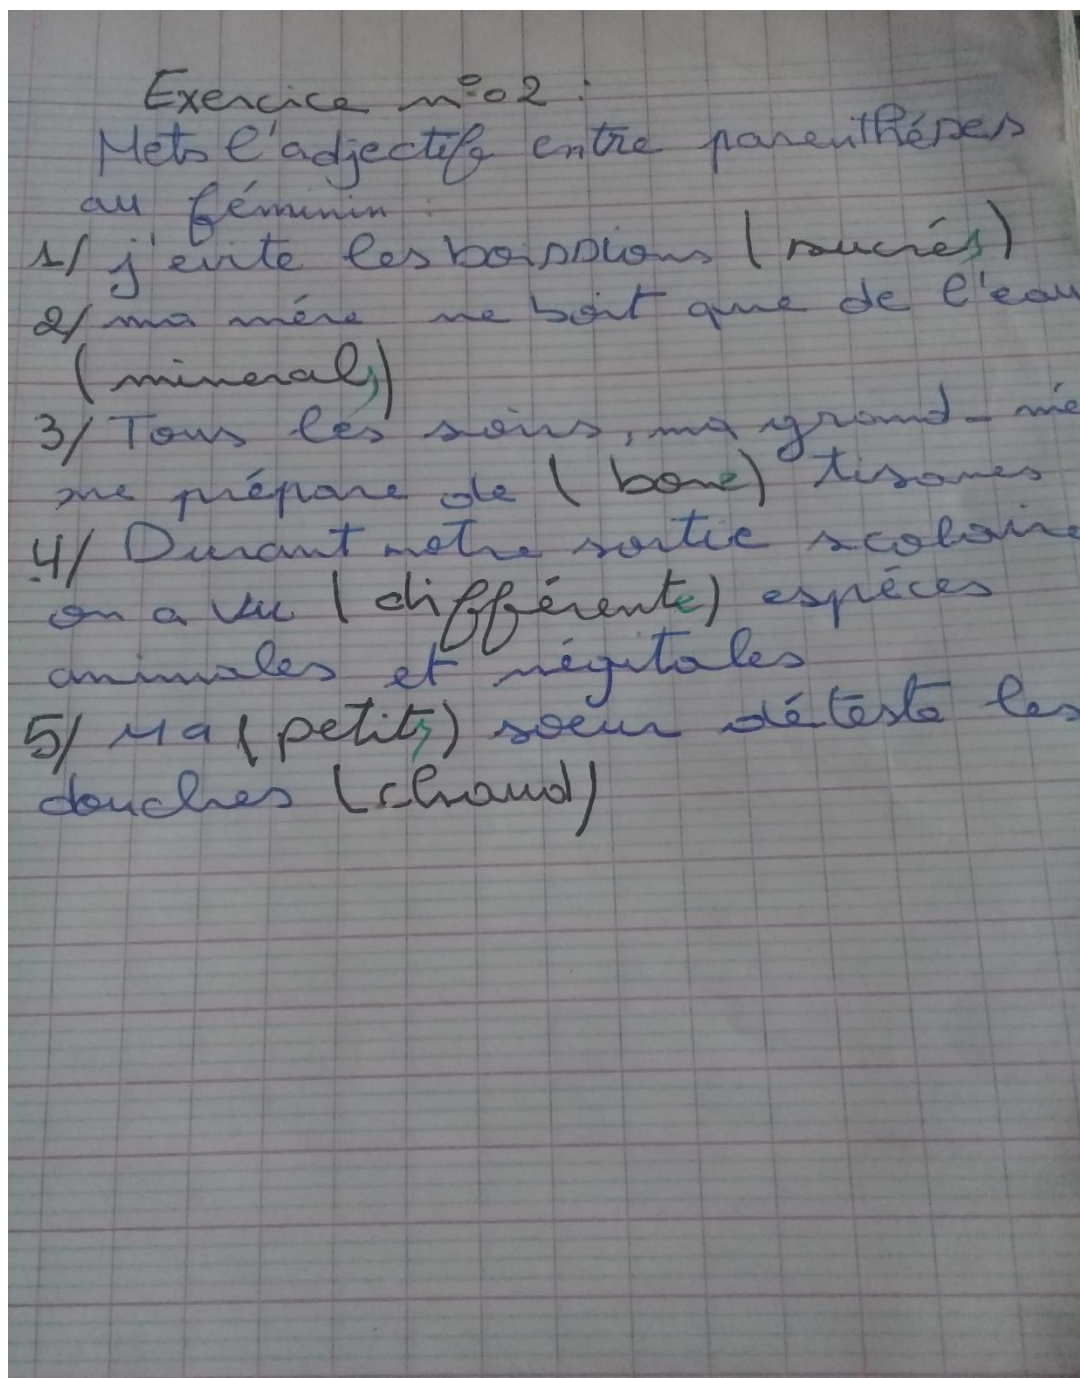 Exercice n° 02 :
Mets l'adjectif entre parenthéses
au féminin :
1/ j'evite les boissions (sucrés)
2/ ma mére ne boit que de l'eau
(mineral)
3/ Tous les soirs, ma grand-mé
me prépare de (bone) tisanes
4/ Durant notre sortie scolaire
on a vu (différente) espéces
animales et végitales
5/ Ma (petit) soeur déteste les
douches (chaud)